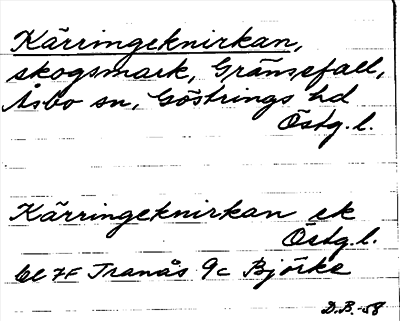 Kärringeknirkan,
skogsmark, Gränsefall,
Åsbo sn, Göstrings hd
Östg. l.
Kärringeknirkan ek
Östg. l.
bl 7F Tranås 9c Björke
D.B.-58